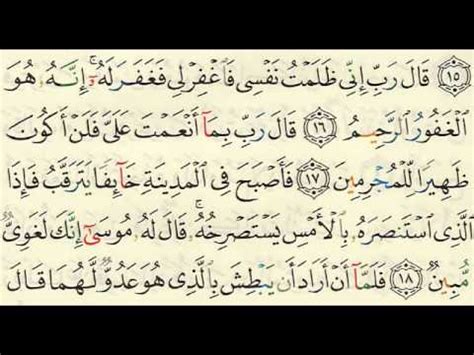 ١٥ قَالَ رَبِّ إِنِّي ظَلَمْتُ نَفْسِي فَٱغْفِرْ لِي فَغَفَرَ لَهُۥٓ ۚ إِنَّهُۥ هُوَ
ٱلْغَفُورُ ٱلرَّحِيمُ ١٦ قَالَ رَبِّ بِمَآ أَنْعَمْتَ عَلَيَّ فَلَنْ أَكُونَ
ظَهِيرًا لِّلْمُجْرِمِينَ ١٧ فَأَصْبَحَ فِي ٱلْمَدِينَةِ خَآئِفًا يَتَرَقَّبُ فَإِذَا
ٱلَّذِي ٱسْتَنصَرَهُۥ بِٱلْأَمْسِ يَسْتَصْرِخُهُۥ ۚ قَالَ لَهُۥ مُوسَىٰٓ إِنَّكَ لَغَوِيٌّ
مُّبِينٌ ١٨ فَلَمَّآ أَنْ أَرَادَ أَن يَبْطِشَ بِٱلَّذِي هُوَ عَدُوٌّ لَّهُمَا قَالَ